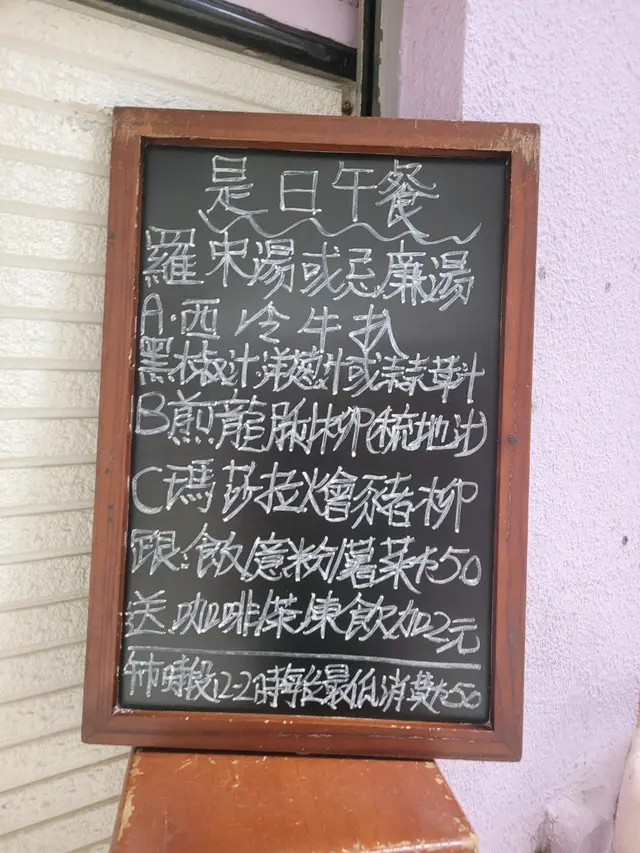 是日午餐
羅宋湯或忌廉湯
A.西冷牛扒
黑椒汁洋葱汁或蒜蓉汁
B煎龍脷柳(梳地汁)
C瑪莎拉燴豬柳
跟:飯/意粉/薯菜 $50
送.咖啡/茶 凍飲加2元
午市時段12-2時每位最低消費$50